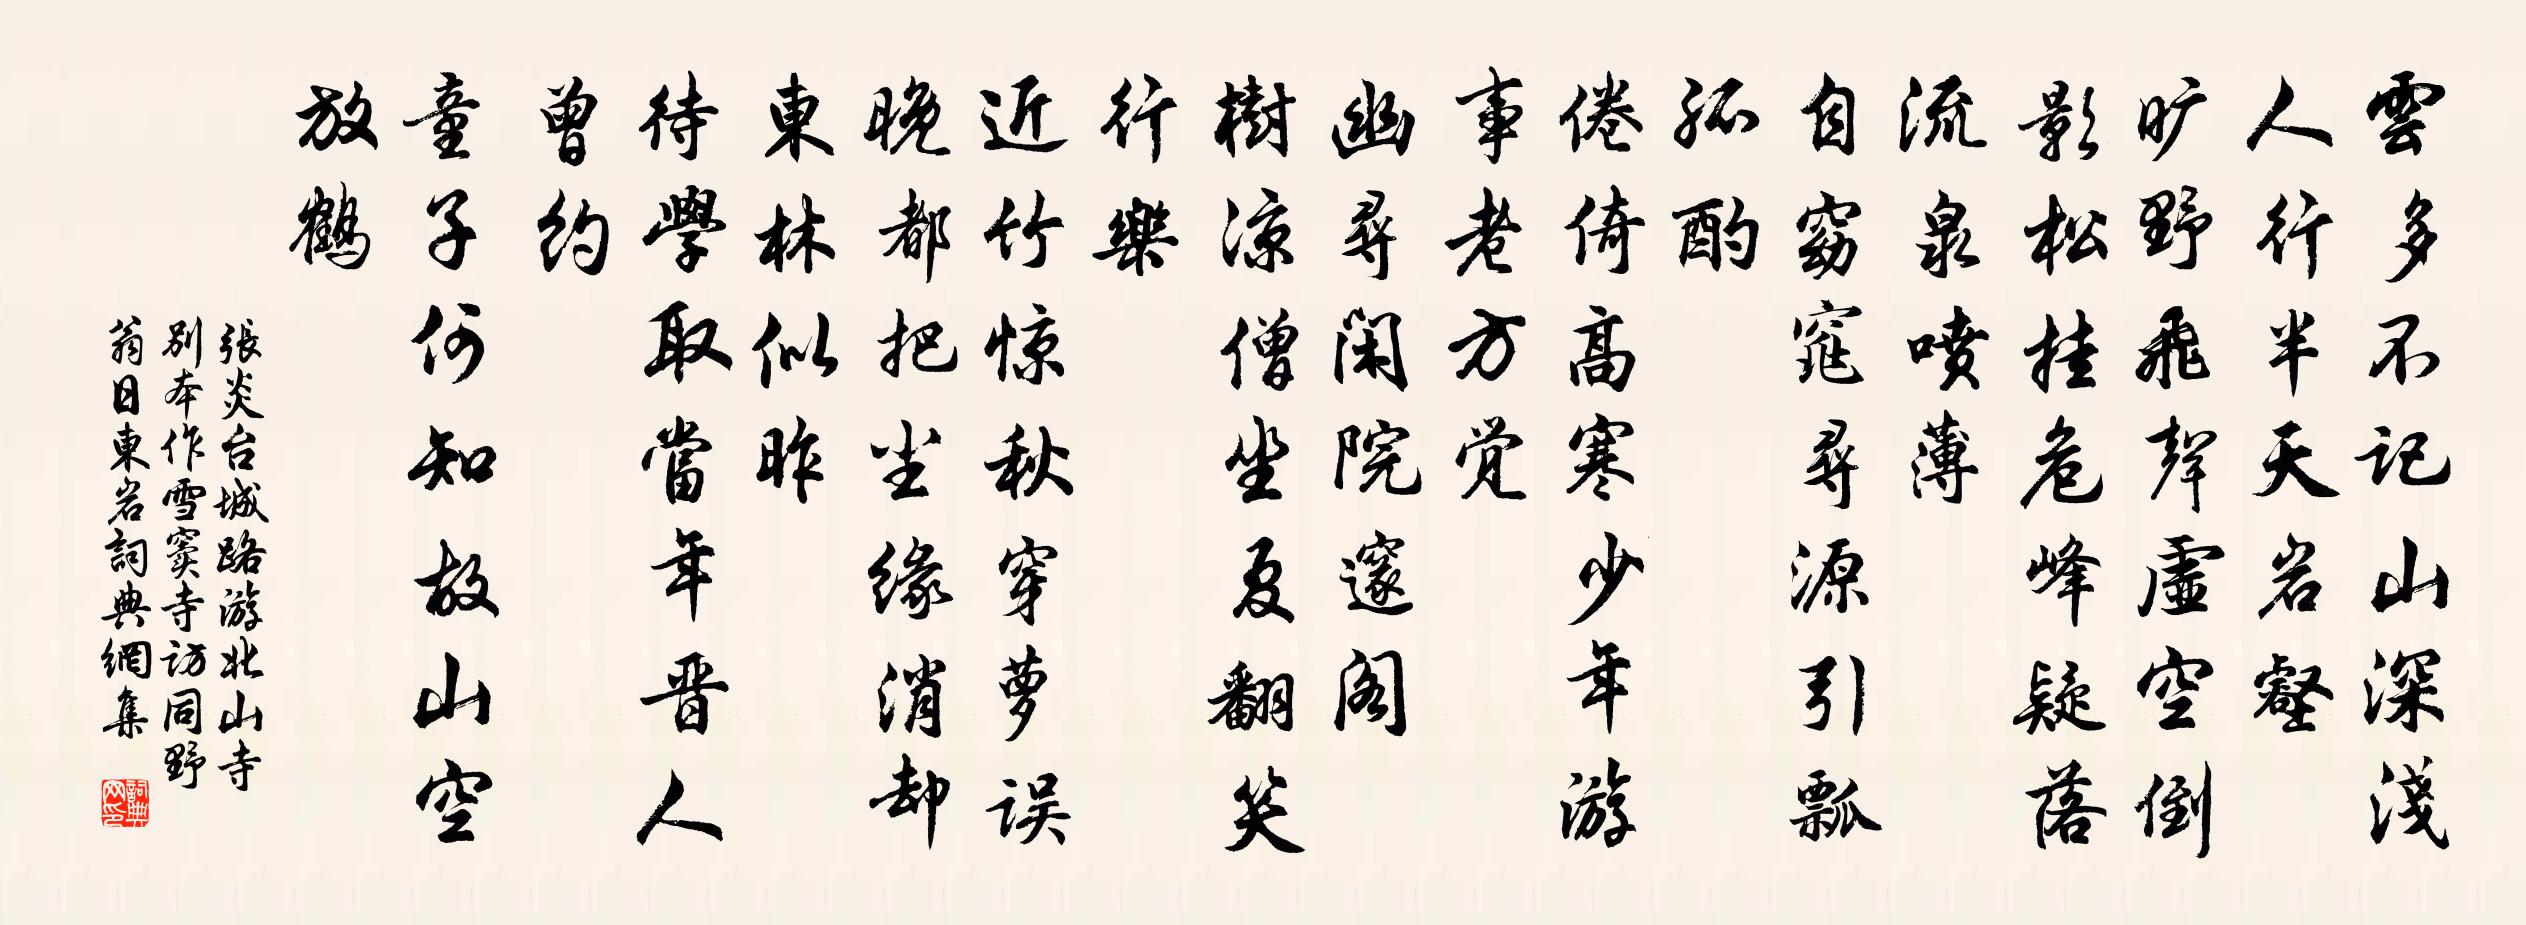 雲多不记山深淺
人行半天岩壑
旷野飛聲虛空倒
影松挂危峰疑落
流泉噴薄
自窈窕尋源引瓢
孤酌
倦倚高寒少年游
事老方觉
幽尋闲院邃阁
樹凉僧坐夏翻笑
行樂
近竹惊秋穿萝误
晚都把尘缘消却
東林似昨
待學取當年晋人
曾约
童子何知故山空
放鶴
張炎台城路游北山寺
别本作雪窦寺访同野
翁日東岩詞典網集
詞典网印